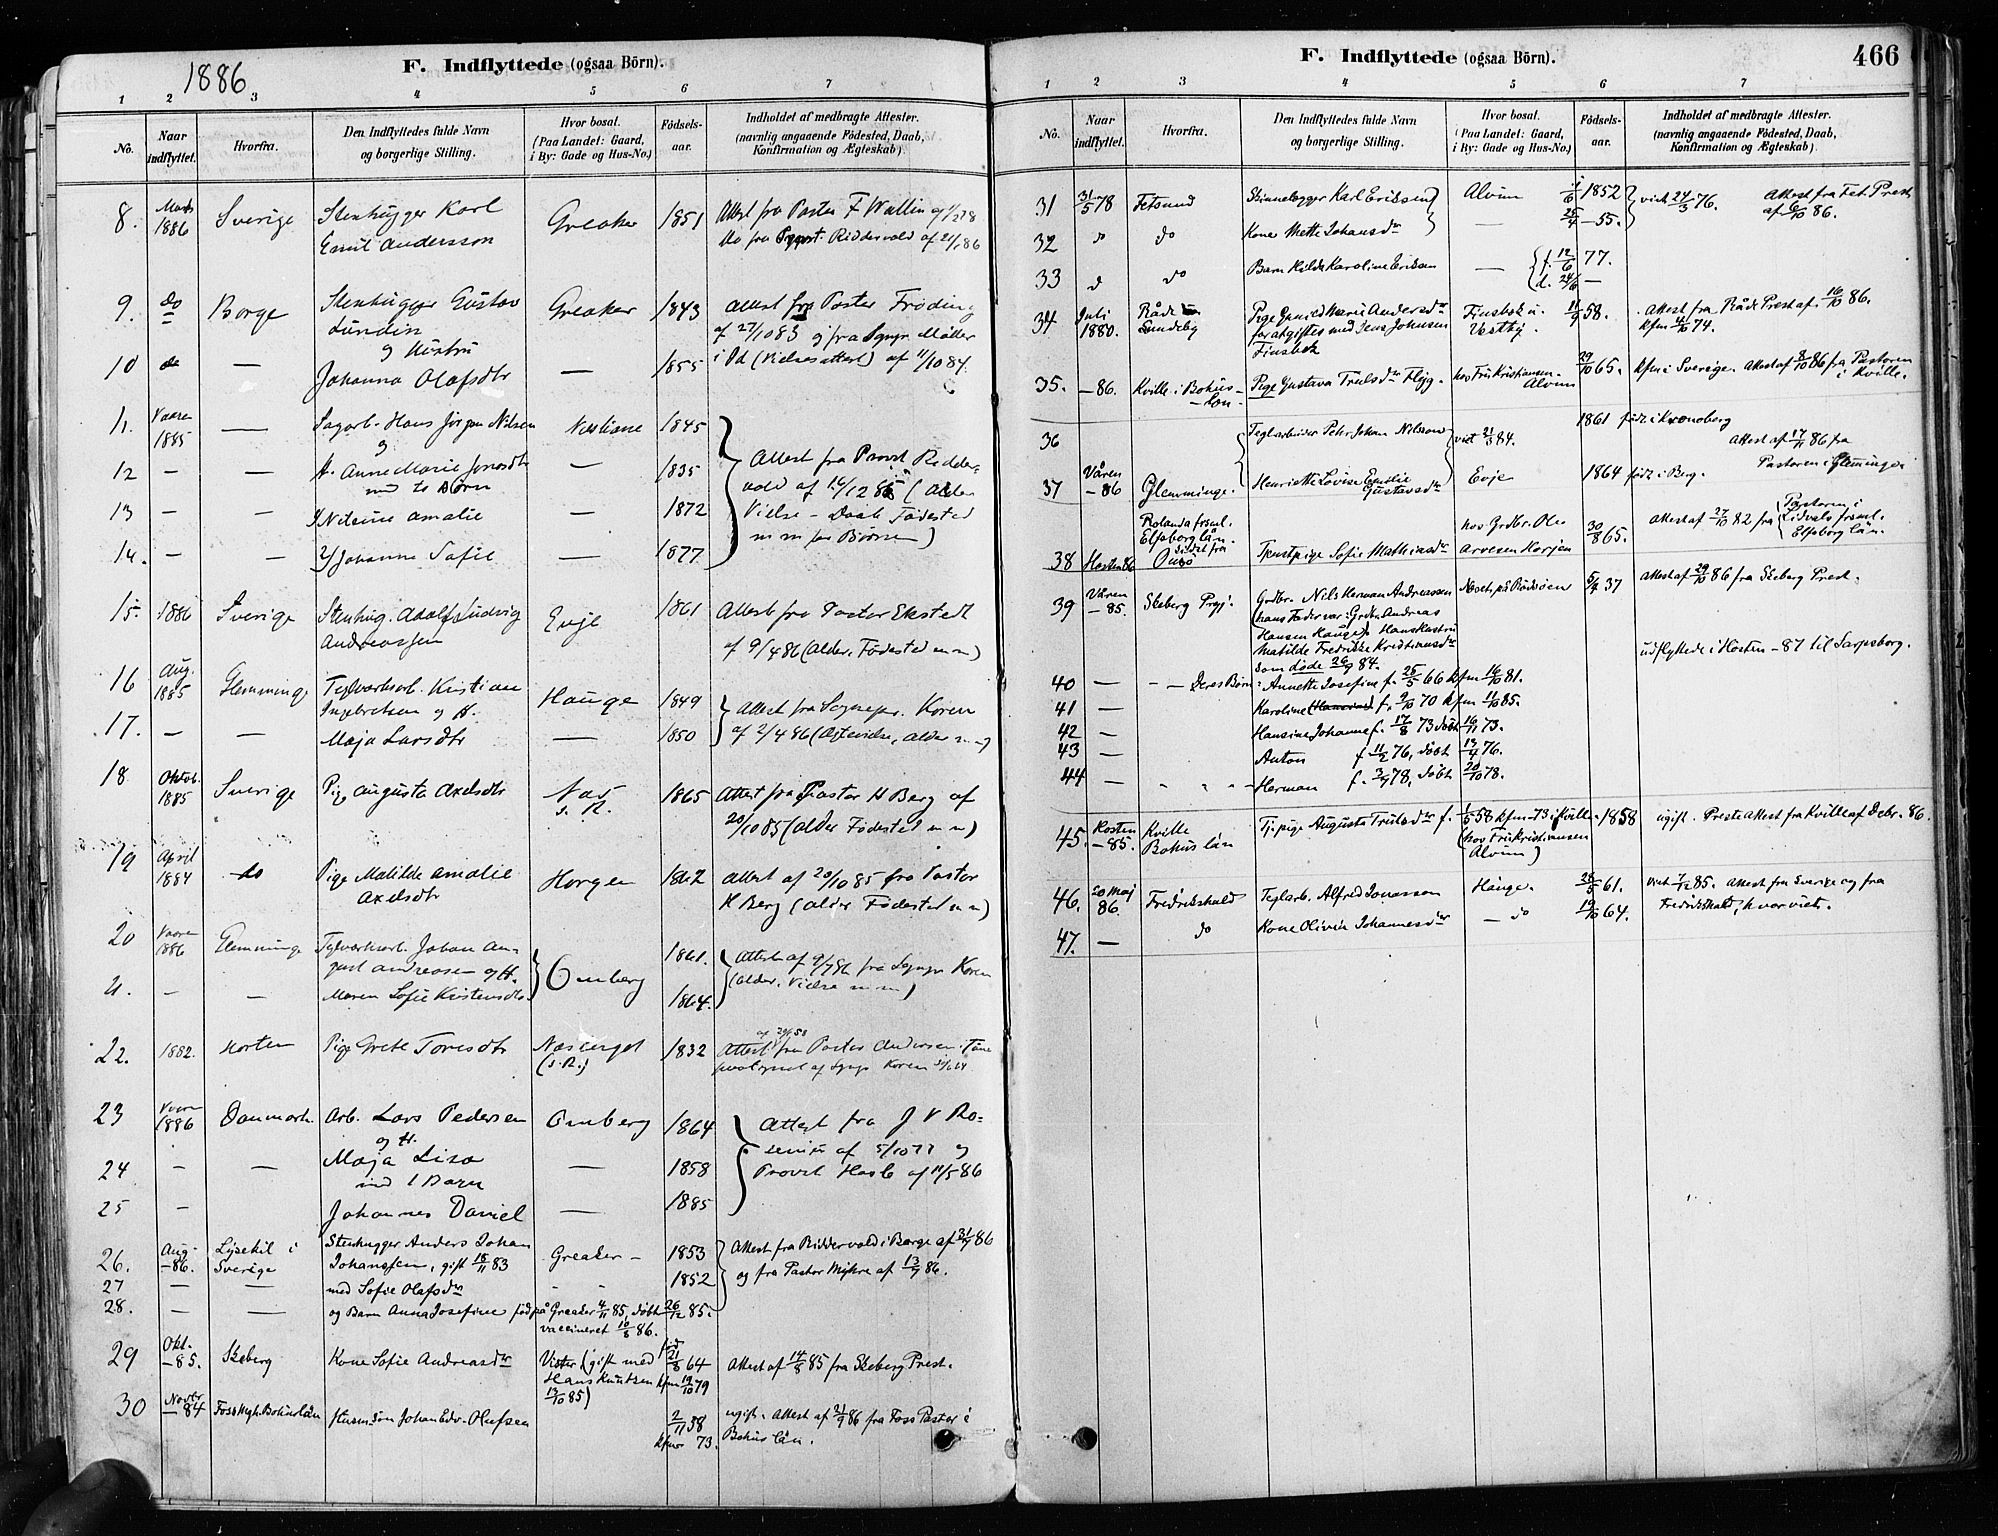 1886
F. Indflyttede (ogsaa Börn).
1 2 3 4 5 6 7
No. Naar indflyttet. Hvorfra. Den Indflyttedes fulde Navn og borgerlige Stilling. Hvor bosat. (Paa Landet: Gaard, i By: Gade og Hus-No.) Födsels-aar. Indholdet af medbragte Attester. (navnlig angaaende Födested, Daab, Konfirmation og Ægteskab).
8. Marts 1886 Sverige Stenhugger Karl Greaker 1851 Attest fra Pastor F Wallin
Emil Andersson
9. do Borge Stenhugger Gustav Greaker 1843 Attest fra Pastor Fröding
Lundin af 27/10 83 og fra Sgnpr Møller
og Hustru i Id (Vielsesattest) af 11/10 84.
10 do — Johanna Olafsdtr — 1855
11. Vaaren 1885 — Sagarb. Hans Jörgen Nilsen 1845
og
12 — — H. Anne Marie — 1835 Attest fra Provst Ridder-
med to Børn vold af 16/12 85 (Alder
13 — — 1872 Vielse – Daab Fødested
amalie m m for Børnene)
14. — — 2/ Johanne Sofie — 1877
15. 1886 Sverige Stenhug. Adolf Ludvig Evje 1861 Attest fra Pastor Ekstedt
Andreassen af 9/4 86 (Alder, Fødested m m)
16 Aug. 1885 Glemminge Teglverksarb. Kristian Hauge 1849 Attest fra Sognepr. Koren
Ingebretsen og H. af 2/4 86 (Ægtevielse, Alder m m)
17. — — Maja Larsdtr — 1850
18 Oktob. 1885 Sverige Pige Augusta Axelsdtr Næs s. R. 1865 Attest fra Pastor H Berg af
20/10 85 (Alder Fødested m m)
19 April 1884 do Pige Matilde Amalie Horgen 1862 Attest af 20/10 85 fra Pastor
Axelsdtr H Berg (alder Fødested m m)
20 Vaaren 1886 Glemminge Teglverksarb. Johan Au- Omberg 1861. Attest af 9/7 86 fra Sgnpr Koren
gust Andreasen og H. (alder, Vielse m m)
21. — — Maren Sofie Kristensdtr 1864.
22. 1882. Horten Pige Grete Toresdtr (s. R.) 1832 Attest fra Pastor Andersen
23 Vaaren 1886 Danmark Arb. Lars Pedersen Omberg 1864 Attest fra J V Ro-
og H. senius af 5/10 77 og
24 — — Maja Lisa — 1858 Provst Hasle af 11/5 86
med 1 Barn
25 — Johannes Daniel — 1885
26. Aug. -86. Lysekil i Sverige Stenhugger Anders Johan Greaker – 1853 Attest fra Riddervold i Borge af 21/9 86
Johanssen, gift 15/11 83 og fra Pastor Myhre af 13/9 86.
27 — — med Sofie Olafsdtr 1852
28. — — og Barn Anna Josefine född på Greaker 4/11 85, döbt 26/12 85.
vaccineret 10/8 86.
29 Okt. -85. Skeberg Kone Sofie Andreasdtr Vister (gift med 21/8 64 Attest af 14/8 85 fra Skeberg Prest.
Hans Knudsen kfm 19/10 79
13/10 85)
30 Novbr -84 Foss Bohuslän Johan Edv. Olufsen 2/11 38 ugift. Attest af 21/9 86 fra Foss Pastor i
kfm 73. Bohus län.
F. Indflyttede (ogsaa Börn).
466
1 2 3 4 5 6 7
No. Naar indflyttet. Hvorfra. Den Indflyttedes fulde Navn og borgerlige Stilling. Hvor bosat. (Paa Landet: Gaard, i By: Gade og Hus-No.) Födsels-aar. Indholdet af medbragte Attester. (navnlig angaaende Födested, Daab, Konfirmation og Ægteskab).
31 31/5 78 Fetsund Karl Eriksen Alvim 1/6 1852 viet 24/3 76. Attest fra Fet Prest
af 6/10 86.
32 do do Kone Mette Johansdtr — 25/4 –55.
33 d do Barn Hilda Karoline Eriksen — f. 12/6 77.
d. 24/6 —
34 Juli 1880. Råde Sundeby Pige Gunild Marie Andersdtr Finsbek u. 11/9 58. Attest fra Råde Prest af 16/10 86.
foratgiftes med Jens Johnsen Vestby kfm 4/10 74.
Finsbek
35. –86. Kville i Bohus- Län Pige Gustava Trulsdtr hos Fru Kristiansen Alvim 29/10 65. kfm i Sverige. Attest af 8/10 86 fra Pastoren
i Kville.
36 Teglarbeider Pehr Johan Nilsson viet 21/5 84. 1861 föd i Kronoberg
Attest af 17/11 86 fra
37 Våren –86 Glemminge. Henriette Lovise Emilie Gustavsdtr Evje 1864 född i Berg. Pastoren i Glemminge
Elfsborg län.
38 Hosten 86 Onsö Tjenstpige Sofie Mathiasdtr hos Grdbr. Ole Arvesen 30/8 65. Attest af 27/10 82 fra Pastoren i
Elfsborg län.
39 Våren –85. Skeberg Prgj. Grdbr. Nils Herman Andreassen 5/4 37 Attest af 29/10 86 fra Skeberg Prest.
(hans Fader var: Grdbr. Andreas
Hansen Hauge). Hans Hustru
Matilde Fredrikke Kristiansdtr udflyttede i Hosten –87 til Sarpsborg.
som döde 26/9 84.
40 — — Deres Börn: Annette Josefine f. 25/5 66 kfm 16/10 81.
41 — Karoline f. 9/10 70 kfm 11/10 85.
42 — Hansine Johanne f. 17/8 73 döbt 16/11 73.
43 — Anton f. 11/2 76, döbt 17/4 76.
44 — Herman f. 3/9 78, döbt 20/10 78.
45. Hosten –85. Kville Bohus län Tj. pige Augusta Trulsdtr f. 1/5 58 kfm –73 i Kville 1858 ugift. Preste Attest fra Kville af Debr. 86.
(hos Fru Kristiansen
Alvim)
46. 20 maj 86. Fredrikshald Teglarb. Alfred Jonasson Hauge. 28/5 61. Viet 7/12 85. Attest fra Sverige og fra
Fredrikshald, hvor viet.
47. — do Kone Olivia Johannesdtr – do 19/10 64.